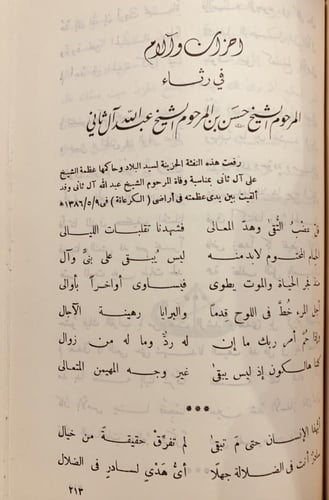 احزان وآلام
في رثاء
المرحوم الشيخ حسن بن المرحوم الشيخ عبد الله آل ثاني
رفعت هذه النفثة الحزينة لسيد البلاد وحاكمها عظمة الشيخ
علي آل ثاني بمناسبة وفاة المرحوم الشيخ عبد الله آل ثاني وقد
ألقيت بين يدي عظمته في أراضي (الكرعانة) في ١٣٨٦/٥/٩هـ
عضب التقى وهد المعالى فشهدنا تقلبات الليالى
المحتوم لا بد منه ليس يبقى على بنى وآل
الحياة والموت يطوى فيساوى أواخراً بأوالى
أجل المرء خط في اللوح قدما والبرايا رهينة الآجال
أمر ربك ما إن له رد وما له من زوال
هالكون إذ ليس يبقى غير وجه المهيمن المتعالى
***
أيهذا الإنسان حتى م تبقى لم تفرق حقيقة من خيال
أنت فى الضلالة جهلا أى هدى لسادر فى الضلال
٢١٣